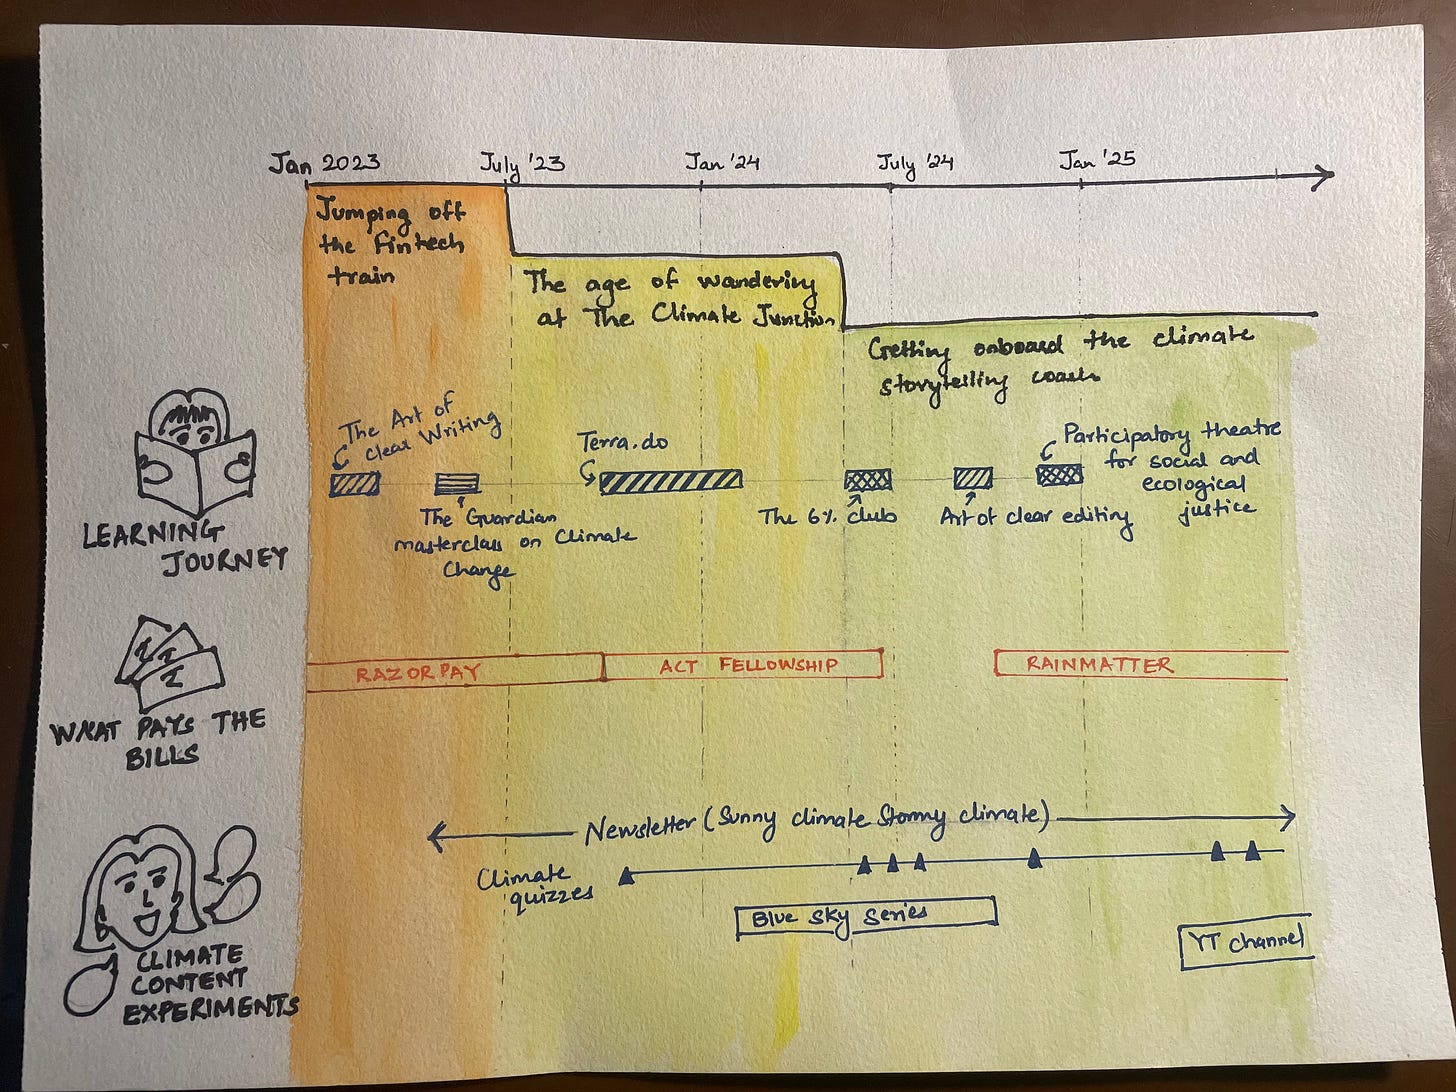 Jan 2023
July '23
Jan '24
July '24
Jan '25
Jumping off
the Fintech
train
The age of wandering
at The Climate Junction
Getting onboard the climate
storytelling coach
LEARNING
JOURNEY
The Art of
clear Writing
The Guardian
masterclass on Climate
Change
Terra.do
The 6% club
Art of clear editing
Participatory theatre
for social and
ecological
justice
WHAT PAYS THE
BILLS
RAZORPAY
ACT FELLOWSHIP
RAINMATTER
CLIMATE
CONTENT
EXPERIMENTS
Newsletter (Sunny climate Stormy climate)
Climate
quizzes
Blue Sky Series
YT channel